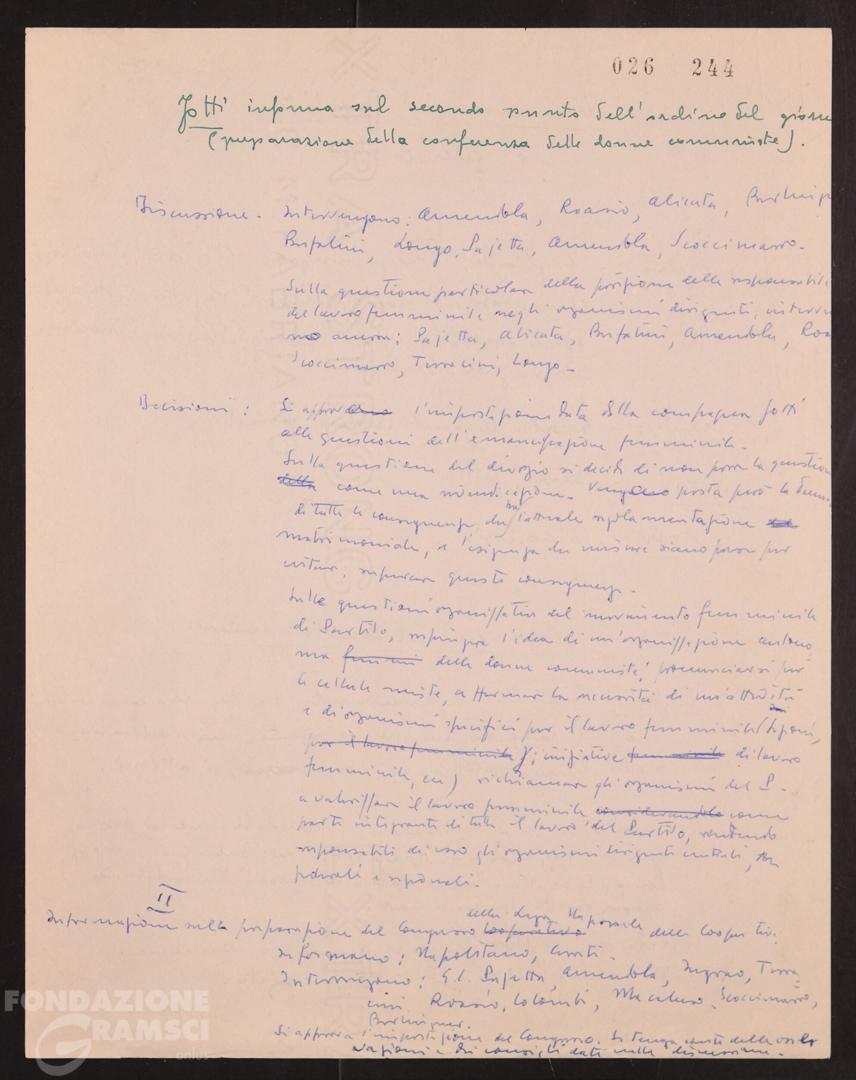 026 244
Jotti informa sul secondo punto dell'ordine del giorn
(preparazione della conferenza delle donne comuniste).
Discussione - Intervengono: Amendola, Roasio, Alicata, Berling
Bufalini, Longo, Pajetta, Amendola, Scoccimarro.
Sulla questione particolare della posizione delle responsabili
del lavoro femminile negli organismi dirigenti, interven
no ancora: Pajetta, Alicata, Bufalini, Amendola, Roa
Scoccimarro, Terracini, Longo.
Decisioni: Si approva l'impostazione data dalla compagna Jotti
alle questioni dell'emancipazione femminile.
Sulla questione del divorzio si decide di non porre la question
della come una rivendicazione. Venga posta però la denun
di tutte le conseguenze che ha l'attuale regolamentazione
matrimoniale, e l'esigenza che misure siano prese per
evitare, superare queste conseguenze.
Sulle questioni organizzative del movimento femminile
di Partito, respingere l'idea di un'organizzazione autono=
ma femmini delle donne comuniste; pronunciarsi per
le cellule miste, affermare la necessità di un'attività
e di organismi specifici per il lavoro femminile
per il lavoro femminile); iniziative femminile di lavoro
femminile, ecc) richiamare gli organismi del P.
a valorizzare il lavoro femminile considerandolo come
parte integrante di tutto il lavoro del Partito, rendendo
responsabili di esso gli organismi dirigenti centrali,
federali e regionali.
II
Informazione sulla preparazione del Congresso cooperativo della Lega Nazionale delle Cooperative.
Informano: Napolitano, Cerreti.
Intervengono: G.C. Pajetta, Amendola, Ingrao, Terra=
cini, Roasio, Colombi, Macaluso, Scoccimarro,
Berlinguer.
Si approva l'impostazione del Congresso. Si tenga conto delle osser
vazioni e dei consigli dati nella discussione.
FONDAZIONE
GRAMSCI
onlus